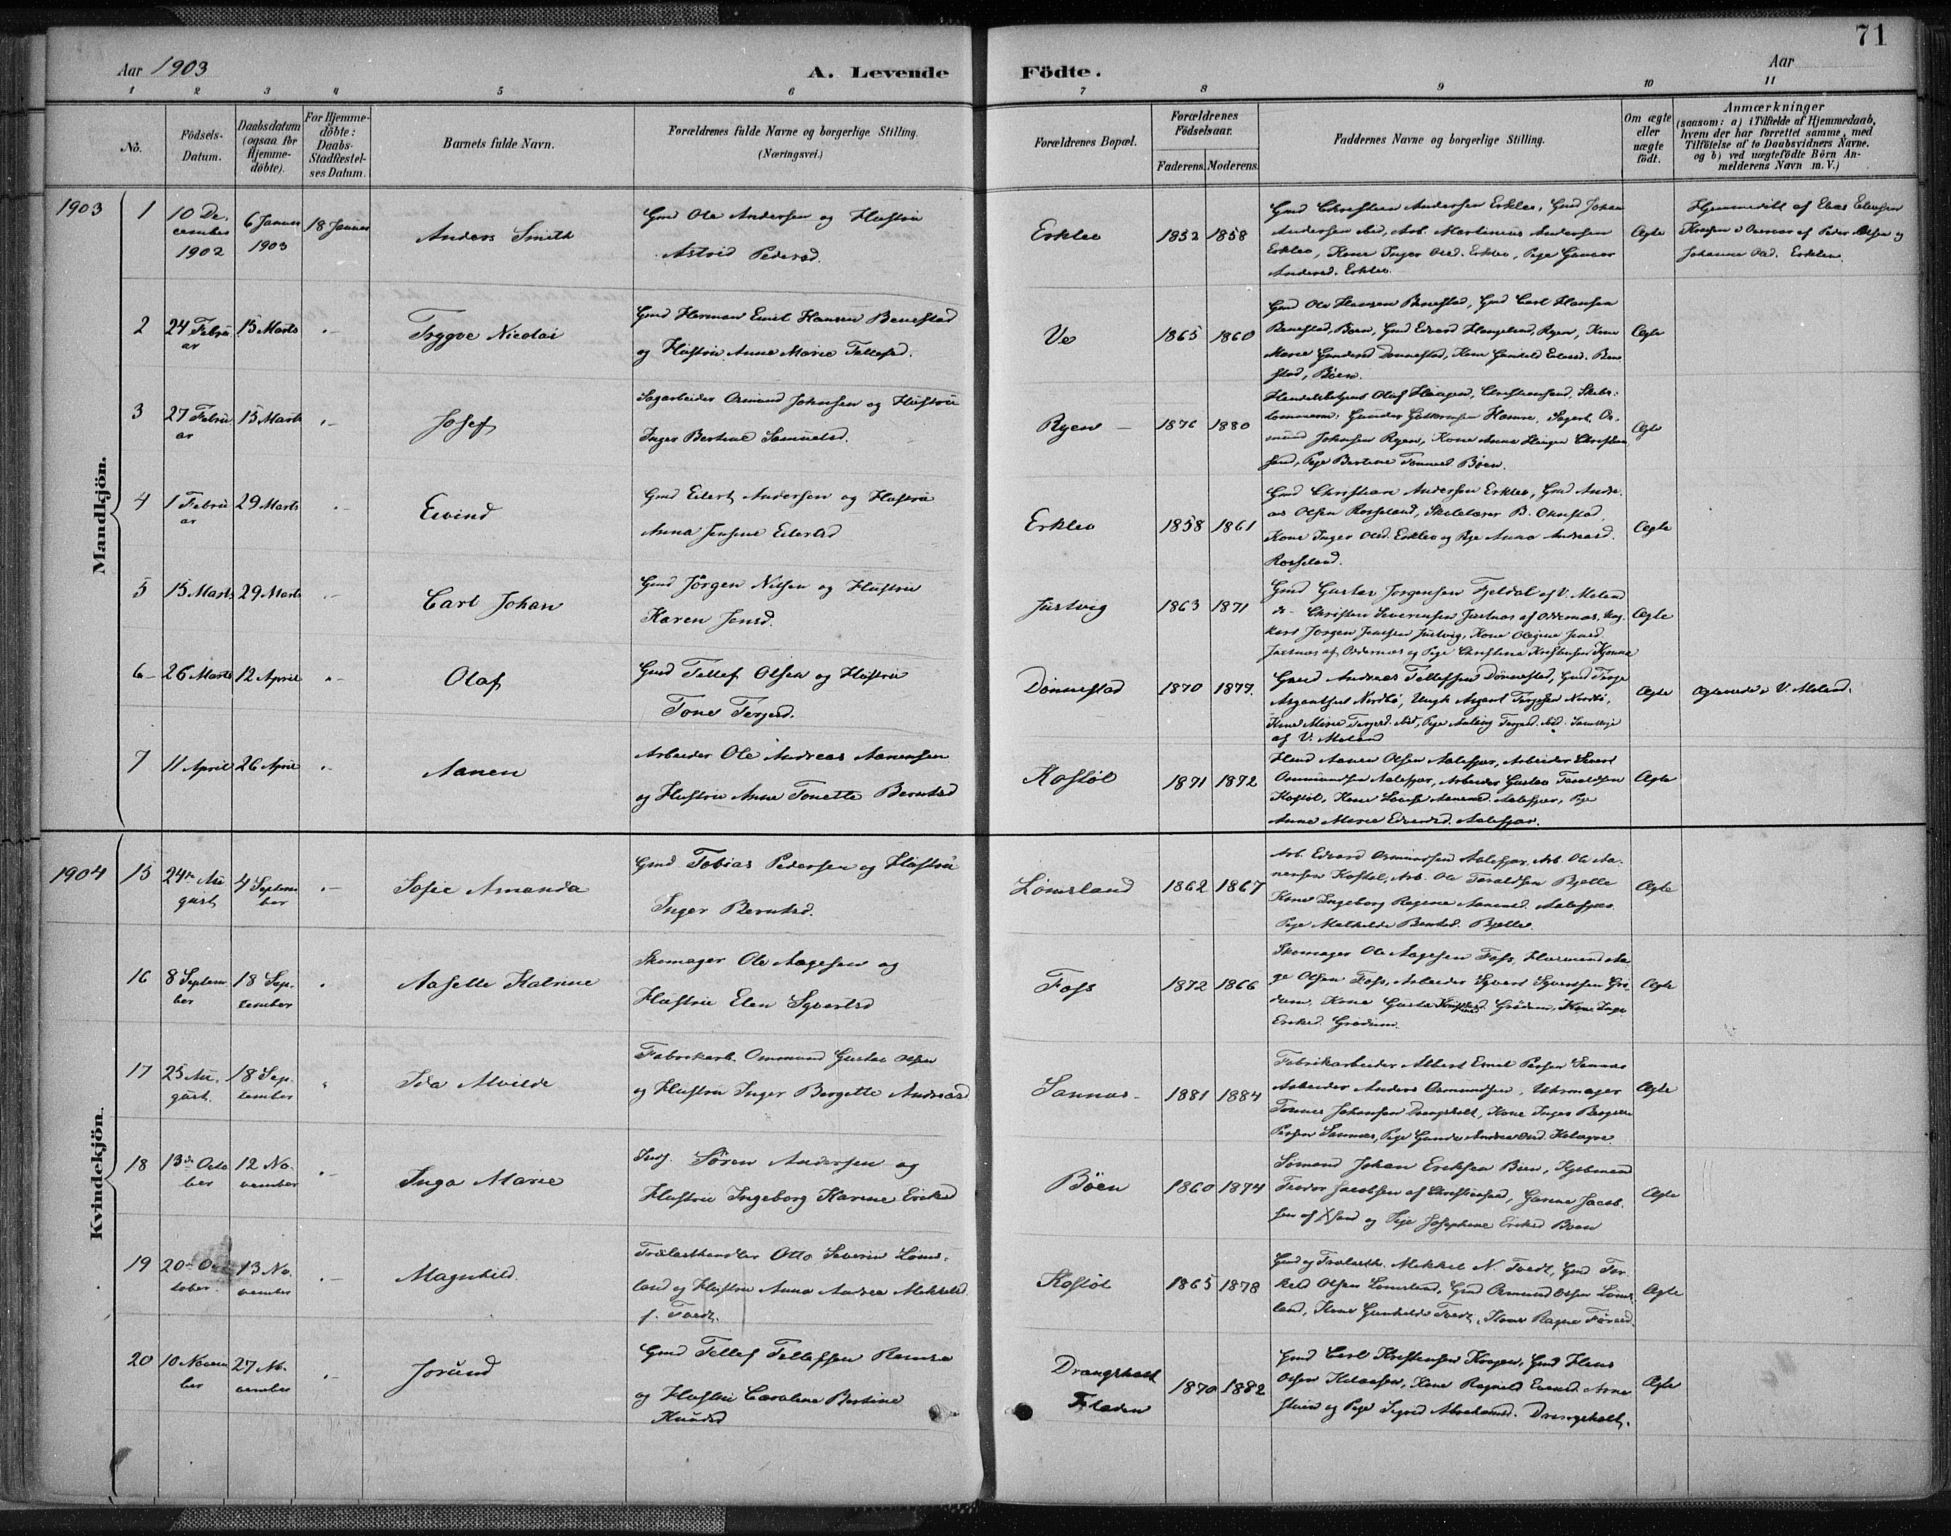 71
Aar 1903
A. Levende Födte.
Aar
1 2 3 4 5 6 7 8 9 10 11
No.
Födsels-Datum.
Daabsdatum (ogsaa for Hjemme-döbte).
For Hjemme-döbte: Daabs-Stadfæstel-ses Datum.
Barnets fulde Navn.
Forældrenes fulde Navne og borgerlige Stilling. (Næringsvei.)
Forældrenes Bopæl.
Forældrenes Födselsaar.
Faderens. Moderens.
Faddernes Navne og borgerlige Stilling.
Om ægte eller uægte födt.
Anmærkninger
(saasom: a) i Tilfælde af Hjemmedaab,
hvem der har forrettet samme, med
Tilföielse af to Daabsvidners Navne.
og b) ved uægtefödte Börn An-
melderens Navn m. V.)
Mandkjön.
1903 1 10 De-cember 1902 6 Januar 1903 18 Januar
Anders Smith
Gmd Ole Andersen og Hustru
Astrid Pedersd.
Erklev 1852 1858
Gmd Christian Andersen Erklev, Gmd Johan
Andersen ibid, Arb. Martinius Andersen
Erklev, Kone Inger Olsd. Erklev, Pige Gunvor
Andersd. Erklev.
Ægte
Hjemmedøbt af Elias
Johanne Olsd. Erklev.
2 24 Februar 15 Marts
Trygve Nicolai
Gmd Herman Emil Hansen Benestad
og Hustru Anne Marie Tellefsd.
Ve 1865 1860
Gmd Ole Hansen Benestad, Gmd Carl Hansen
Benestad, Boen, Gmd Edvard Ryen, Kone
Marie Gundersd Dønnestad, Kone Gunhild Ben-
stad, Bøen.
Ægte
3 27 Februar 15 Marts
Josef
Sagarbeider Osmund Johnsen og Hustru
Inger Bertine Samuelsd.
Ryen 1876 1880
Olaf Haagen, Christianssand,
Gunder Guttormsen Hamre, Sagarb. Os-
mund Johnsen Ryen, Kone Anna Haagen Christian-
sand, Pige Bertine Tommesd. Bøen.
Ægte
4 1 Februar 29 Marts
Eivind
Gmd Eilert Andersen og Hustru
Anna Jensine Eilertsd
Erklev 1858 1861
Gmd Christian Andersen Erklev, Gmd Andre-
as Olsen Rosseland, Skolelærer B. Ounstad,
Kone Inger Olsd. Erklev og Pige Anna Andreasd.
Rosseland.
Ægte
5 15 Marts 29 Marts
Carl Johan
Gmd Jörgen Nilsen og Hustru
Karen Jensd.
Justvig 1863 1871
Gmd Gustav Jørgensen Fjeldal af V. Moland
do- Christen Severinsen Justnæs af Oddernæs, Ung-
karl Jørgen Jensen Justvig, Kone Olegine Jensd.
Justnæs af Oddernæs og Pige Christine Kristensen
Ægte
6 26 Marts 12 April
Olaf
Gmd Tellef Olsen og Hustru
Tone Terjesd.
Dönnestad 1870 1877.
Gmd Andreas Tellefsen Dönnestad, Gmd Terje
Asgautsen Nordbö, Ungk Asgaut Terjesen Nordbö,
Kone Marie Terjesd. ibid, Pige Aslaug Terjesd. ibid. Samtlige
af V. Moland
Ægte
V. Moland.
7 11 April 26 April
Aanen
Arbeider Ole Andreas Aanensen
og Hustru Anne Tonette Berntsd
Kostöl 1871 1872
Hmd Aanen Olsen Aalefjær, Arbeider Edvard
Osmundsen Aalefjær, Arbeider Gustav Taraldsen
Kostöl, Kone Lovise Aanensd. Aalefjær, Pige
Anne Marie Edvardsd. Aalefjær.
Ægte
Kvindekjön.
1904 15 24de August 4 September
Sofie Amanda
Gmd Tobias Pedersen og Hustru
Inger Berntsd.
Lömsland 1862 1867
Arb. Edvard Osmundsen Aalefjær, Arb. Ole Aa-
nensen Kostöl, Arb. Ole Taraldsen Bjelle
Kone Ingeborg Regine Aanensd. Aalefjær
Pige Mathilde Berntsd. Bjelle.
Ægte
16 8 September 18 September
Aaselle Katrine
Skomager Ole Aagesen og
Hustru Elen Syvertsd
Foss 1872 1866
Skomager Ole Aagesen Foss, Huusmand Aa-
ge Olsen Foss, Arbeider Syvert Syvertsen Grö-
dum, Kone Gusta Grödum, Kone Inge
Eriksd. Grödum.
Ægte
17 25 August 18 September
Ida Alvilde
Fabrikarb. Ommund Gustav Olsen
og Hustru Inger Bergette Andreasd
Sannæs 1881 1884
Fabrikarbeider Albert Emil Persen Sannæs
Arbeider Anders Osmundsen, Uhrmager
Tomas Johansen Drangsholt, Kone Inger Bergitte
Persen Sannæs, Pige Gunda Andrea
Ægte
18 13de October 12 November
Inga Marie
Søren Andersen og
Hustru Ingeborg Karine Eriksd
Böen 1860 1874
Sömand Johan Eriksen Bøen, Kjøbmand
Teodor Jacobsen af Christianssand, Jacob-
sen af Xsand og Pige Josephine Eriksd Boen
Ægte
19 20de October 13 November
Magnhild.
Trælasthandler Otto Severin Löms-
land og Hustru Anna Andrea Mekkelsd.
f. Tvedt.
Kostöl 1865 1878
Gmd og Trælasth. Mekkel N. Tvedt, Gmd Ter-
keld Olsen Lömsland, Gmd Osmund Olsen Löms-
land, Kone Gunhilde Tvedt, Kone Ragne
Ægte
20 10 November 27 November
Jorund
Gmd Tellef Tellefsen Ramse
og Hustru Caroline Bertine
Knudsd
Drangsholt
Fladen
1870 1882
Gmd Carl Kristensen Kragen, Gmd Hans
Olsen, Kone Ragnild Evensd. Arne-
stuen og Pige Sigrid Abrahamsd. Drangsholt.
Ægte